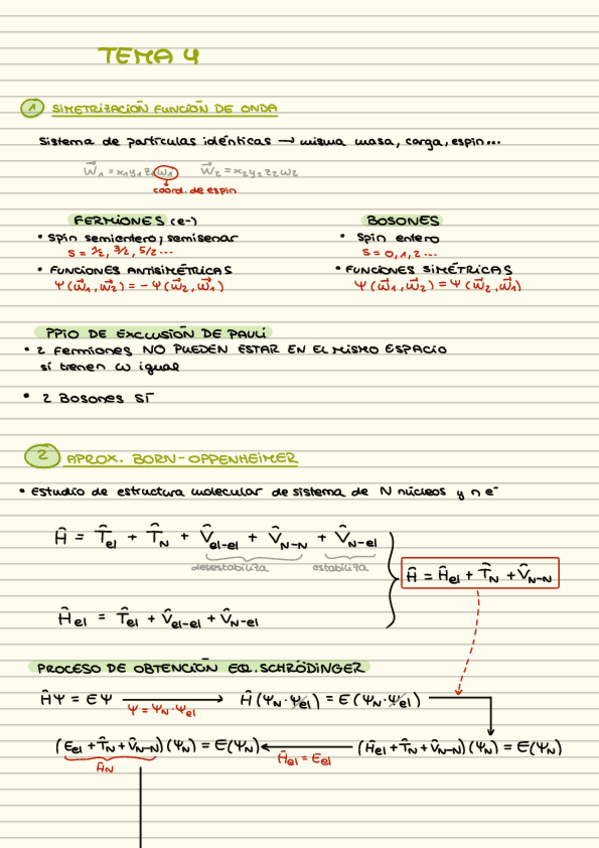 TEMA 4
1 SIMETRIZACIÓN FUNCIÓN DE ONDA
Sistema de partículas idénticas → misma masa, carga, espin...
W⃗₁ = x₁y₁z₁ω₁   W⃗₂ = x₂y₂z₂ω₂
coord. de espin
FERMIONES (e-)
• Spin semientero; semisenar
S = 1/2, 3/2, 5/2 ...
• FUNCIONES ANTISIMÉTRICAS
Ψ(ω⃗₁, ω⃗₂) = - Ψ(ω⃗₂, ω⃗₁)
BOSONES
• Spin entero
S = 0, 1, 2 ...
• FUNCIONES SIMÉTRICAS
Ψ(ω⃗₁, ω⃗₂) = Ψ(ω⃗₂, ω⃗₁)
PPIO DE EXCLUSIÓN DE PAULI
• 2 Fermiones NO PUEDEN ESTAR EN EL MISMO ESPACIO
sí tienen ω igual
• 2 Bosones SÍ
2 APROX. BORN-OPPENHEIMER
• Estudio de estructura molecular de sistema de N núcleos y n e⁻
Ĥ = T̂el + T̂N + V̂el-el + V̂N-N + V̂N-el
desestabiliza   estabiliza
Ĥ = Ĥel + T̂N + V̂N-N
Ĥel = T̂el + V̂el-el + V̂N-el
PROCESO DE OBTENCIÓN EQ. SCHRÖDINGER
ĤΨ = EΨ → Ĥ(ΨN·Ψel) = E(ΨN·Ψel)
Ψ = ΨN·Ψel
(Eel + T̂N + V̂N-N)(ΨN) = E(ΨN) ← (Ĥel + T̂N + V̂N-N)(ΨN) = E(ΨN)
ĤN   Ĥel = Eel